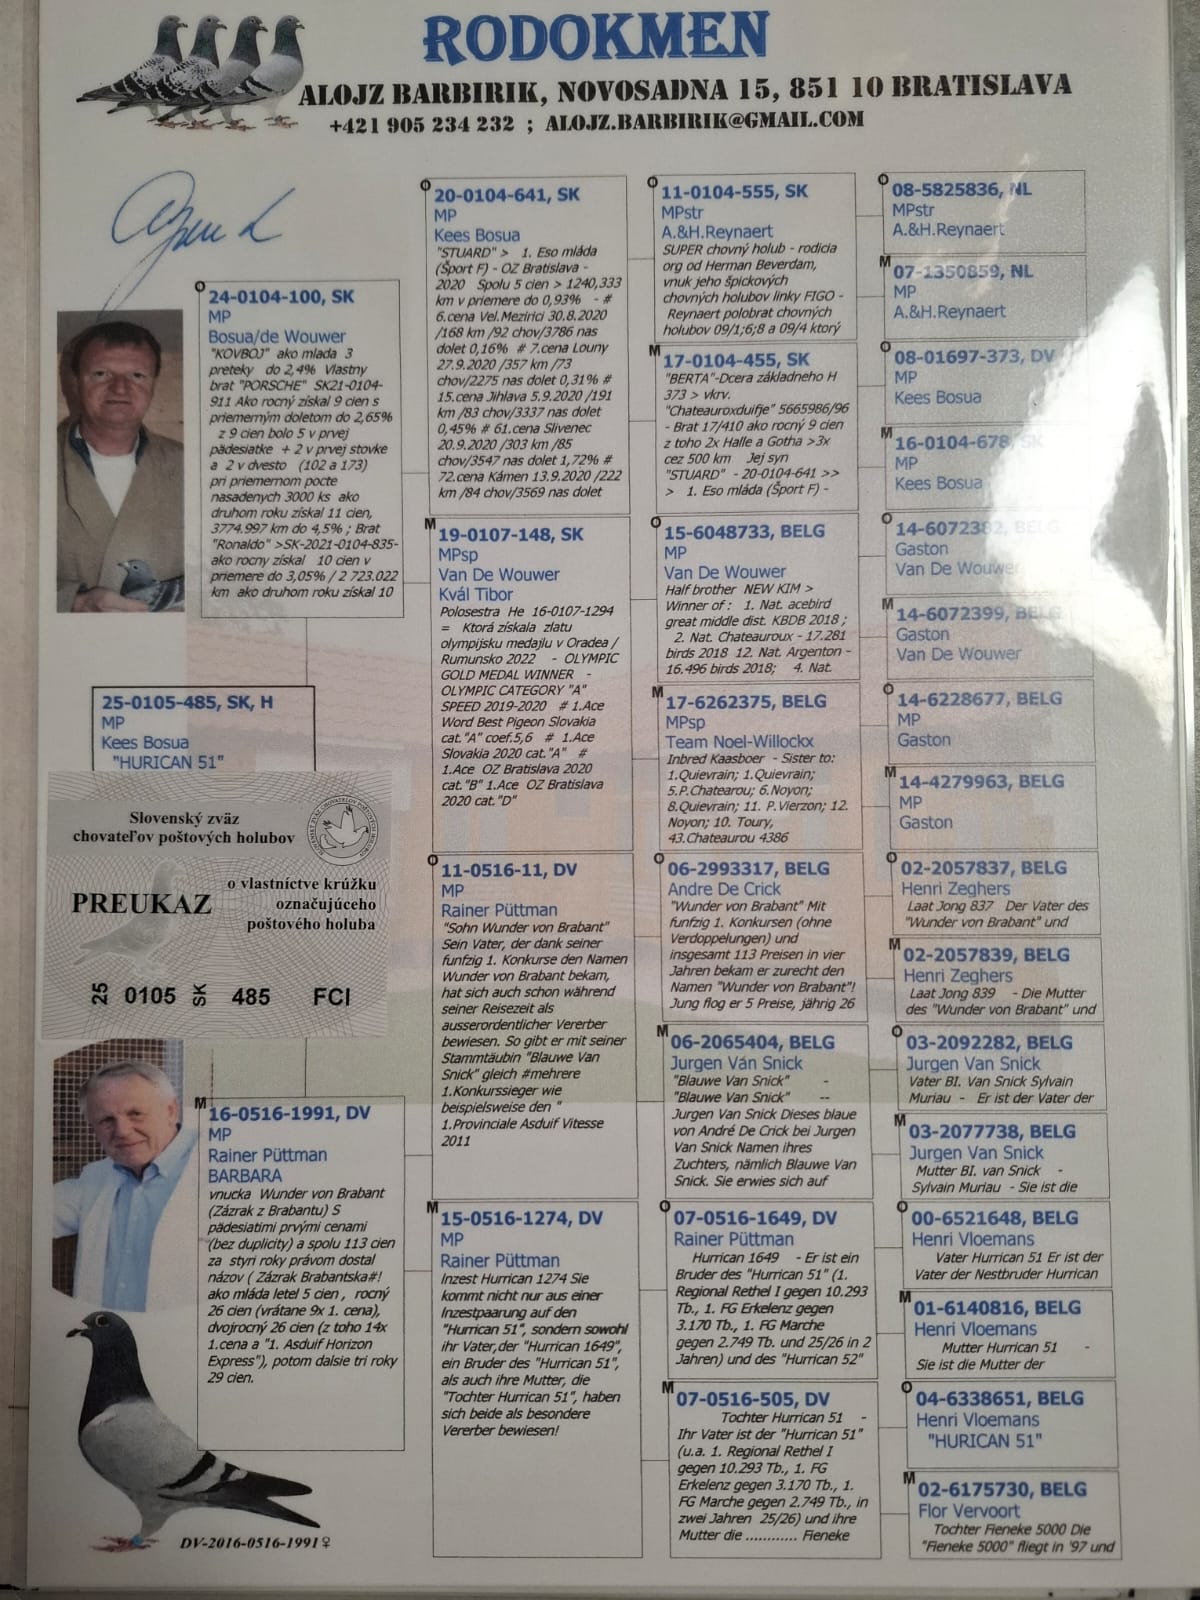 RODOKMEN
ALOJZ BARBIRIK, NOVOSADNA 15, 851 10 BRATISLAVA
+421 905 234 232 ; ALOJZ.BARBIRIK@GMAIL.COM
O
24-0104-100, SK
MP
Bosua/de Wouwer
"KOVBOJ" ako mlada 3
preteky do 2,4% Vlastny
brat "PORSCHE" SK21-0104-
911 Ako ročný získal 9 cien s
priemerným doletom do 2,65%
z 9 cien bolo 5 v prvej
pädesiatke + 2 v prvej stovke
a 2 v dvesto (102 a 173)
pri priemernom pocte
nasadenych 3000 ks ako
druhom roku získal 11 cien,
3774.997 km do 4,5% ; Brat
"Ronaldo" >SK-2021-0104-835-
ako rocny získal 10 cien v
priemere do 3,05% / 2 723.022
km ako druhom roku získal 10
25-0105-485, SK, H
MP
Kees Bosua
"HURICAN 51"
Slovenský zväz
chovateľov poštových holubov
PREUKAZ
o vlastníctve krúžku
označujúceho
poštového holuba
25 0105 SK 485 FCI
M
16-0516-1991, DV
MP
Rainer Püttman
BARBARA
vnucka Wunder von Brabant
(Zázrak z Brabantu) S
pädesiatimi prvými cenami
(bez duplicity) a spolu 113 cien
za styri roky právom dostal
názov ( Zázrak Brabantska#!
ako mláda letel 5 cien , rocný
26 cien (vrátane 9x 1. cena),
dvojrocný 26 cien (z toho 14x
1.cena a "1. Asduif Horizon
Express"), potom dalsie tri roky
29 cien.
DV-2016-0516-1991♀
O
20-0104-641, SK
MP
Kees Bosua
"STUARD" > 1. Eso mláda
(Šport F) - OZ Bratislava -
2020 Spolu 5 cien > 1240,333
km v priemere do 0,93% - #
6.cena Vel.Mezirici 30.8.2020
/168 km /92 chov/3786 nas
dolet 0,16% # 7.cena Louny
27.9.2020 /357 km /73
chov/2275 nas dolet 0,31% #
15.cena Jihlava 5.9.2020 /191
km /83 chov/3337 nas dolet
0,45% # 61.cena Slivenec
20.9.2020 /303 km /85
chov/3547 nas dolet 1,72% #
72.cena Kámen 13.9.2020 /222
km /84 chov/3569 nas dolet
M
19-0107-148, SK
MPsp
Van De Wouwer
Kvál Tibor
Polosestra He 16-0107-1294
= Ktorá získala zlatu
olympijsku medajlu v Oradea /
Rumunsko 2022 - OLYMPIC
GOLD MEDAL WINNER -
OLYMPIC CATEGORY "A"
SPEED 2019-2020 # 1.Ace
Word Best Pigeon Slovakia
cat."A" coef.5,6 # 1.Ace
Slovakia 2020 cat."A" #
1.Ace OZ Bratislava 2020
cat."B" 1.Ace OZ Bratislava
2020 cat."D"
O
11-0516-11, DV
MP
Rainer Püttman
"Sohn Wunder von Brabant"
Sein Vater, der dank seiner
funfzig 1. Konkurse den Namen
Wunder von Brabant bekam,
hat sich auch schon während
seiner Reisezeit als
ausserordentlicher Vererber
bewiesen. So gibt er mit seiner
Stammtäubin "Blauwe Van
Snick" gleich #mehrere
1.Konkurssieger wie
beispielsweise den "
1.Provinciale Asduif Vitesse
2011
M
15-0516-1274, DV
MP
Rainer Püttman
Inzest Hurrican 1274 Sie
kommt nicht nur aus einer
Inzestpaarung auf den
"Hurrican 51", sondern sowohl
ihr Vater,der "Hurrican 1649",
ein Bruder des "Hurrican 51",
als auch ihre Mutter, die
"Tochter Hurrican 51", haben
sich beide als besondere
Vererber bewiesen!
O
11-0104-555, SK
MPstr
A.&H.Reynaert
SUPER chovný holub - rodicia
org od Herman Beverdam,
vnuk jeho špickových
chovných holubov linky FIGO -
Reynaert polobrat chovných
holubov 09/1;6;8 a 09/4 ktorý
M
17-0104-455, SK
"BERTA"-Dcera základneho H
373 > vkrv.
"Chateauroxduifje" 5665986/96
- Brat 17/410 ako rocný 9 cien
z toho 2x Halle a Gotha >3x
cez 500 km Jej syn
"STUARD" - 20-0104-641 >>
> 1. Eso mláda (Šport F) -
O
15-6048733, BELG
MP
Van De Wouwer
Half brother NEW KIM >
Winner of : 1. Nat. acebird
great middle dist. KBDB 2018 ;
2. Nat. Chateauroux - 17.281
birds 2018 12. Nat. Argenton -
16.496 birds 2018; 4. Nat.
M
17-6262375, BELG
MPsp
Team Noel-Willockx
Inbred Kaasboer - Sister to:
1.Quievrain; 1.Quievrain;
5.P.Chatearou; 6.Noyon;
8.Quievrain; 11. P.Vierzon; 12.
Noyon; 10. Toury,
43.Chateaurou 4386
O
06-2993317, BELG
Andre De Crick
"Wunder von Brabant" Mit
funfzig 1. Konkursen (ohne
Verdoppelungen) und
insgesamt 113 Preisen in vier
Jahren bekam er zurecht den
Namen "Wunder von Brabant"!
Jung flog er 5 Preise, jährig 26
M
06-2065404, BELG
Jurgen Ván Snick
"Blauwe Van Snick" -
"Blauwe Van Snick" --
Jurgen Van Snick Dieses blaue
von André De Crick bei Jurgen
Van Snick Namen ihres
Zuchters, nämlich Blauwe Van
Snick. Sie erwies sich auf
O
07-0516-1649, DV
Rainer Püttman
Hurrican 1649 - Er ist ein
Bruder des "Hurrican 51" (1.
Regional Rethel I gegen 10.293
Tb., 1. FG Erkelenz gegen
3.170 Tb., 1. FG Marche
gegen 2.749 Tb. und 25/26 in 2
Jahren) und des "Hurrican 52"
M
07-0516-505, DV
Tochter Hurrican 51 -
Ihr Vater ist der "Hurrican 51"
(u.a. 1. Regional Rethel I
gegen 10.293 Tb., 1. FG
Erkelenz gegen 3.170 Tb., 1.
FG Marche gegen 2.749 Tb., in
zwei Jahren 25/26) und ihre
Mutter die ............ Fieneke
O
08-5825836, NL
MPstr
A.&H.Reynaert
M
07-1350859, NL
MP
A.&H.Reynaert
O
08-01697-373, DV
MP
Kees Bosua
M
16-0104-678, SK
MP
Kees Bosua
O
14-6072382, BELG
Gaston
Van De Wouwer
M
14-6072399, BELG
Gaston
Van De Wouwer
O
14-6228677, BELG
MP
Gaston
M
14-4279963, BELG
MP
Gaston
O
02-2057837, BELG
Henri Zeghers
Laat Jong 837 Der Vater des
"Wunder von Brabant" und
M
02-2057839, BELG
Henri Zeghers
Laat Jong 839 - Die Mutter
des "Wunder von Brabant" und
O
03-2092282, BELG
Jurgen Van Snick
Vater BI. Van Snick Sylvain
Muriau - Er ist der Vater der
M
03-2077738, BELG
Jurgen Van Snick
Mutter BI. van Snick -
Sylvain Muriau - Sie ist die
O
00-6521648, BELG
Henri Vloemans
Vater Hurrican 51 Er ist der
Vater der Nestbruder Hurrican
M
01-6140816, BELG
Henri Vloemans
Mutter Hurrican 51 -
Sie ist die Mutter der
O
04-6338651, BELG
Henri Vloemans
"HURICAN 51"
M
02-6175730, BELG
Flor Vervoort
Tochter Fieneke 5000 Die
"Fieneke 5000" fliegt in '97 und